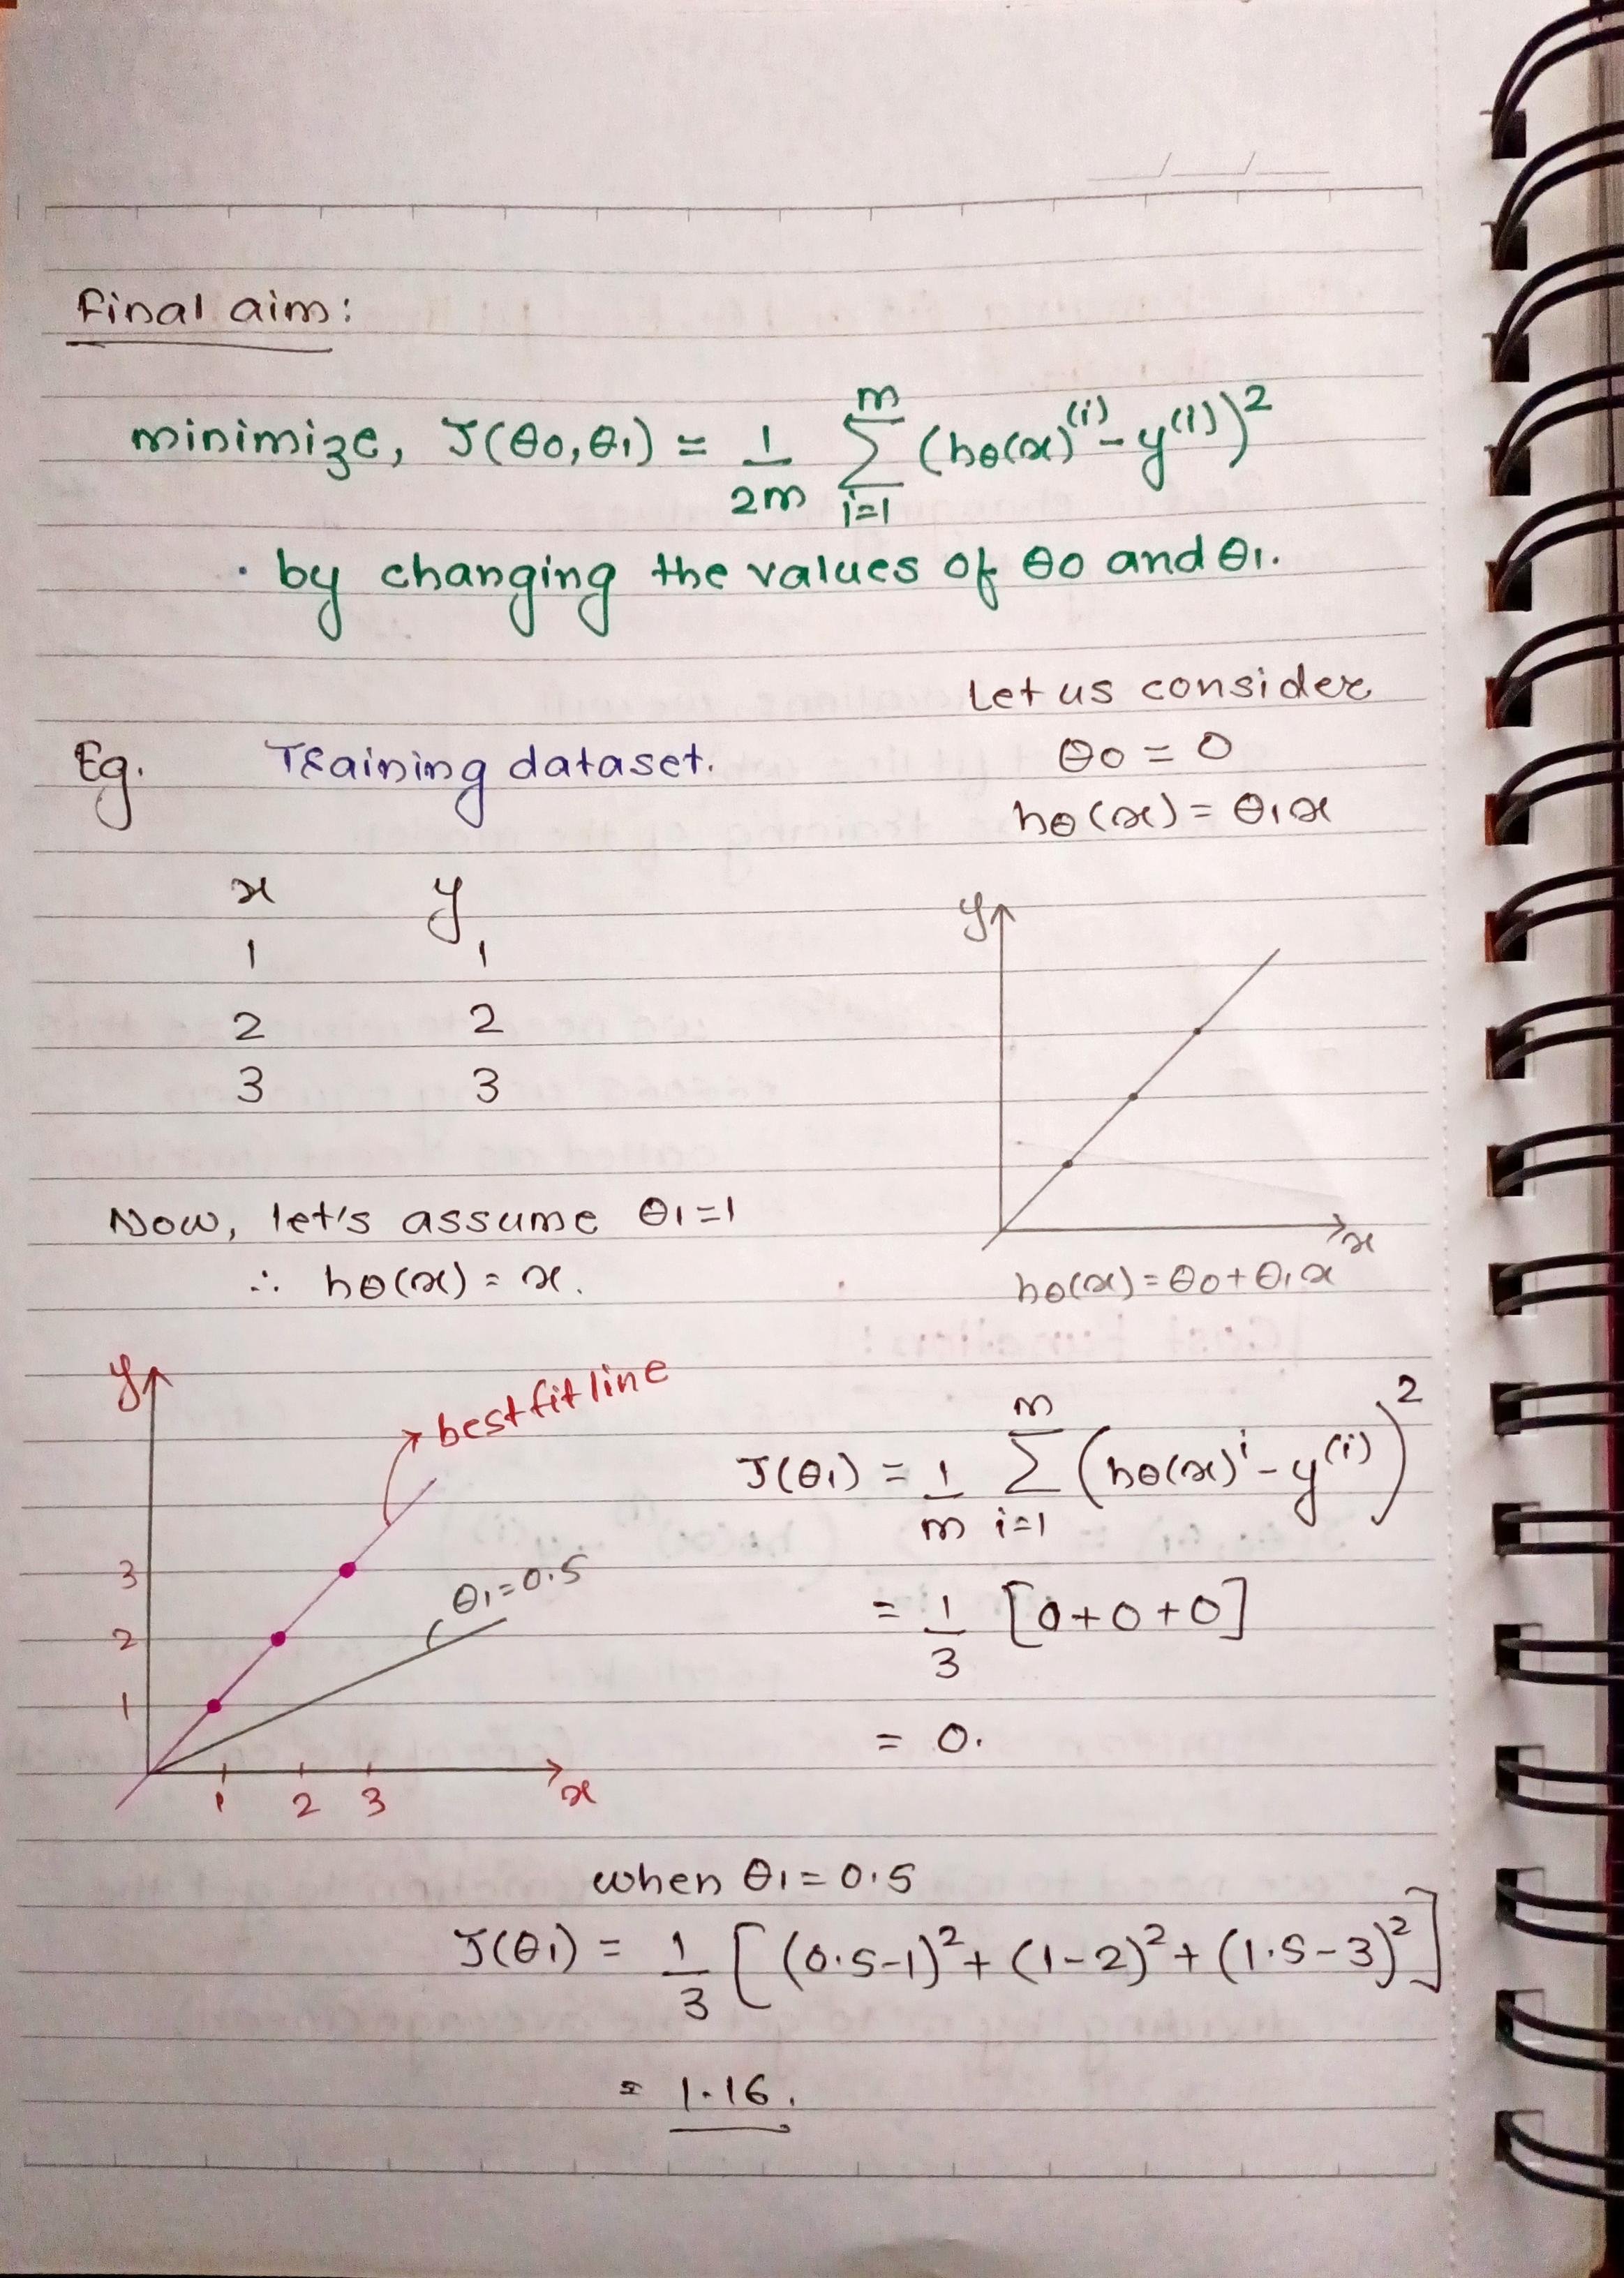 Final aim:
minimize, J(θ0,θ1) = 1/2m Σ_{i=1}^{m} (hθ(x)^(i) - y^(i))^2
· by changing the values of θ0 and θ1.
Let us consider
Eg. Training dataset.
θ0 = 0
hθ(x) = θ1x
x y
1 1
2 2
3 3
y
x
hθ(x) = θ0+θ1x
Now, let's assume θ1=1
∴ hθ(x) = x.
y
best fit line
θ1=0.5
3
2
1
1 2 3 x
J(θ1) = 1/m Σ_{i=1}^{m} (hθ(x)^i - y^(i))^2
= 1/3 [0+0+0]
= 0.
when θ1=0.5
J(θ1) = 1/3 [(0.5-1)^2 + (1-2)^2 + (1.5-3)^2]
= 1.16.